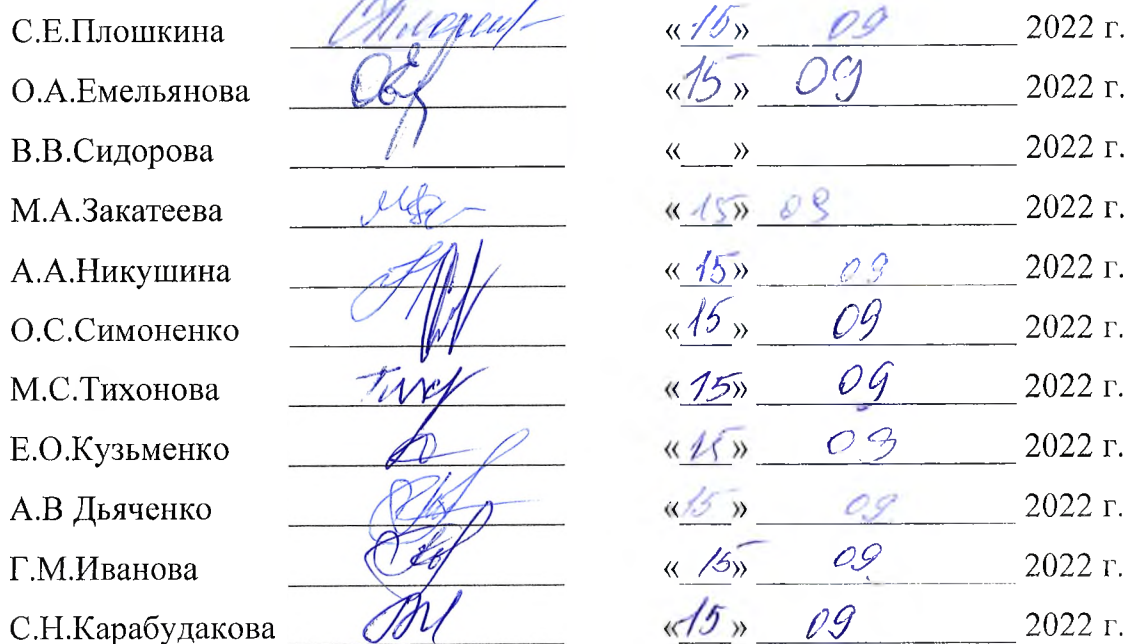 С.Е.Плошкина «15» 09 2022 г.
О.А.Емельянова «15» 09 2022 г.
В.В.Сидорова « » 2022 г.
М.А.Закатеева «15» 09 2022 г.
А.А.Никушина «15» 09 2022 г.
О.С.Симоненко «15» 09 2022 г.
М.С.Тихонова «15» 09 2022 г.
Е.О.Кузьменко «15» 09 2022 г.
А.В Дьяченко «15» 09 2022 г.
Г.М.Иванова «15» 09 2022 г.
С.Н.Карабудакова «15» 09 2022 г.